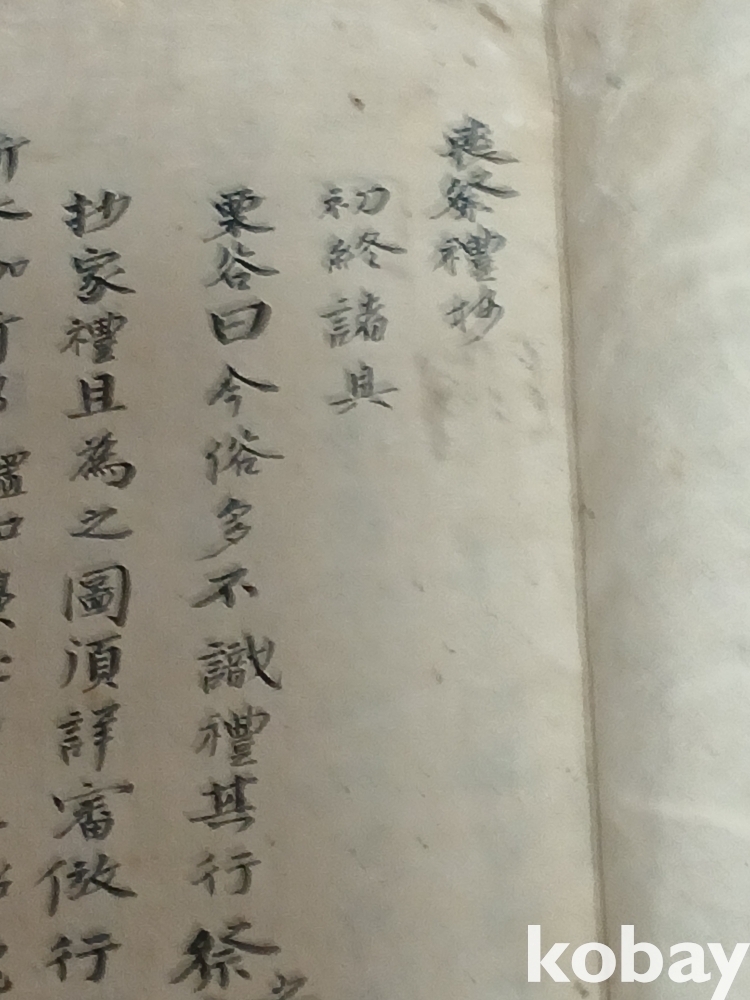 喪祭禮抄
初終諸具
栗谷曰今俗多不識禮其行祭
抄家禮且為之圖須詳審倣行
kobay